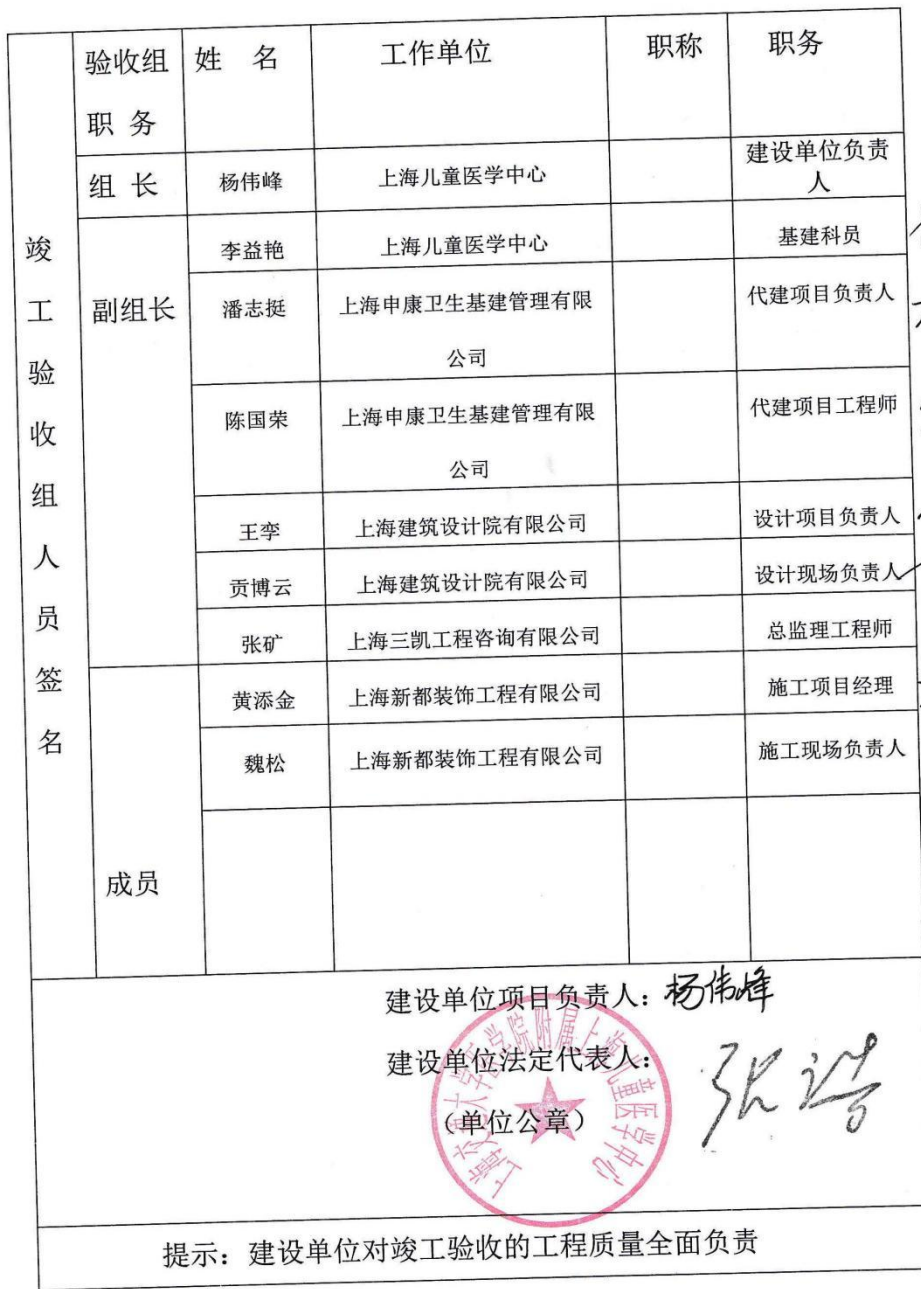 竣工验收组人员签名
验收组职务 姓 名 工作单位 职称 职务
组 长 杨伟峰 上海儿童医学中心 建设单位负责人
副组长
李益艳 上海儿童医学中心 基建科员
潘志挺 上海申康卫生基建管理有限公司 代建项目负责人
陈国荣 上海申康卫生基建管理有限公司 代建项目工程师
王孪 上海建筑设计院有限公司 设计项目负责人
贡博云 上海建筑设计院有限公司 设计现场负责人
张矿 上海三凯工程咨询有限公司 总监理工程师
成员
黄添金 上海新都装饰工程有限公司 施工项目经理
魏松 上海新都装饰工程有限公司 施工现场负责人
建设单位项目负责人：杨伟峰
建设单位法定代表人：
（单位公章）
上海交通大学医学院附属上海儿童医学中心
提示：建设单位对竣工验收的工程质量全面负责